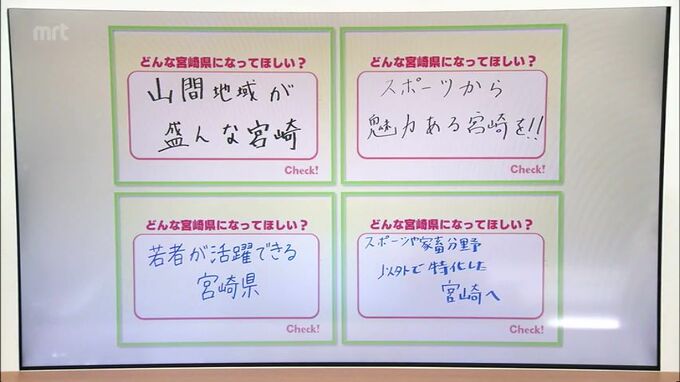 mrt
どんな宮崎県になってほしい？
山間地域が
盛んな宮崎
Check!
どんな宮崎県になってほしい？
スポーツから
魅力ある宮崎を!!
Check!
どんな宮崎県になってほしい？
若者が活躍できる
宮崎県
Check!
どんな宮崎県になってほしい？
スポーツや家畜分野
以外で特化した
宮崎へ
Check!